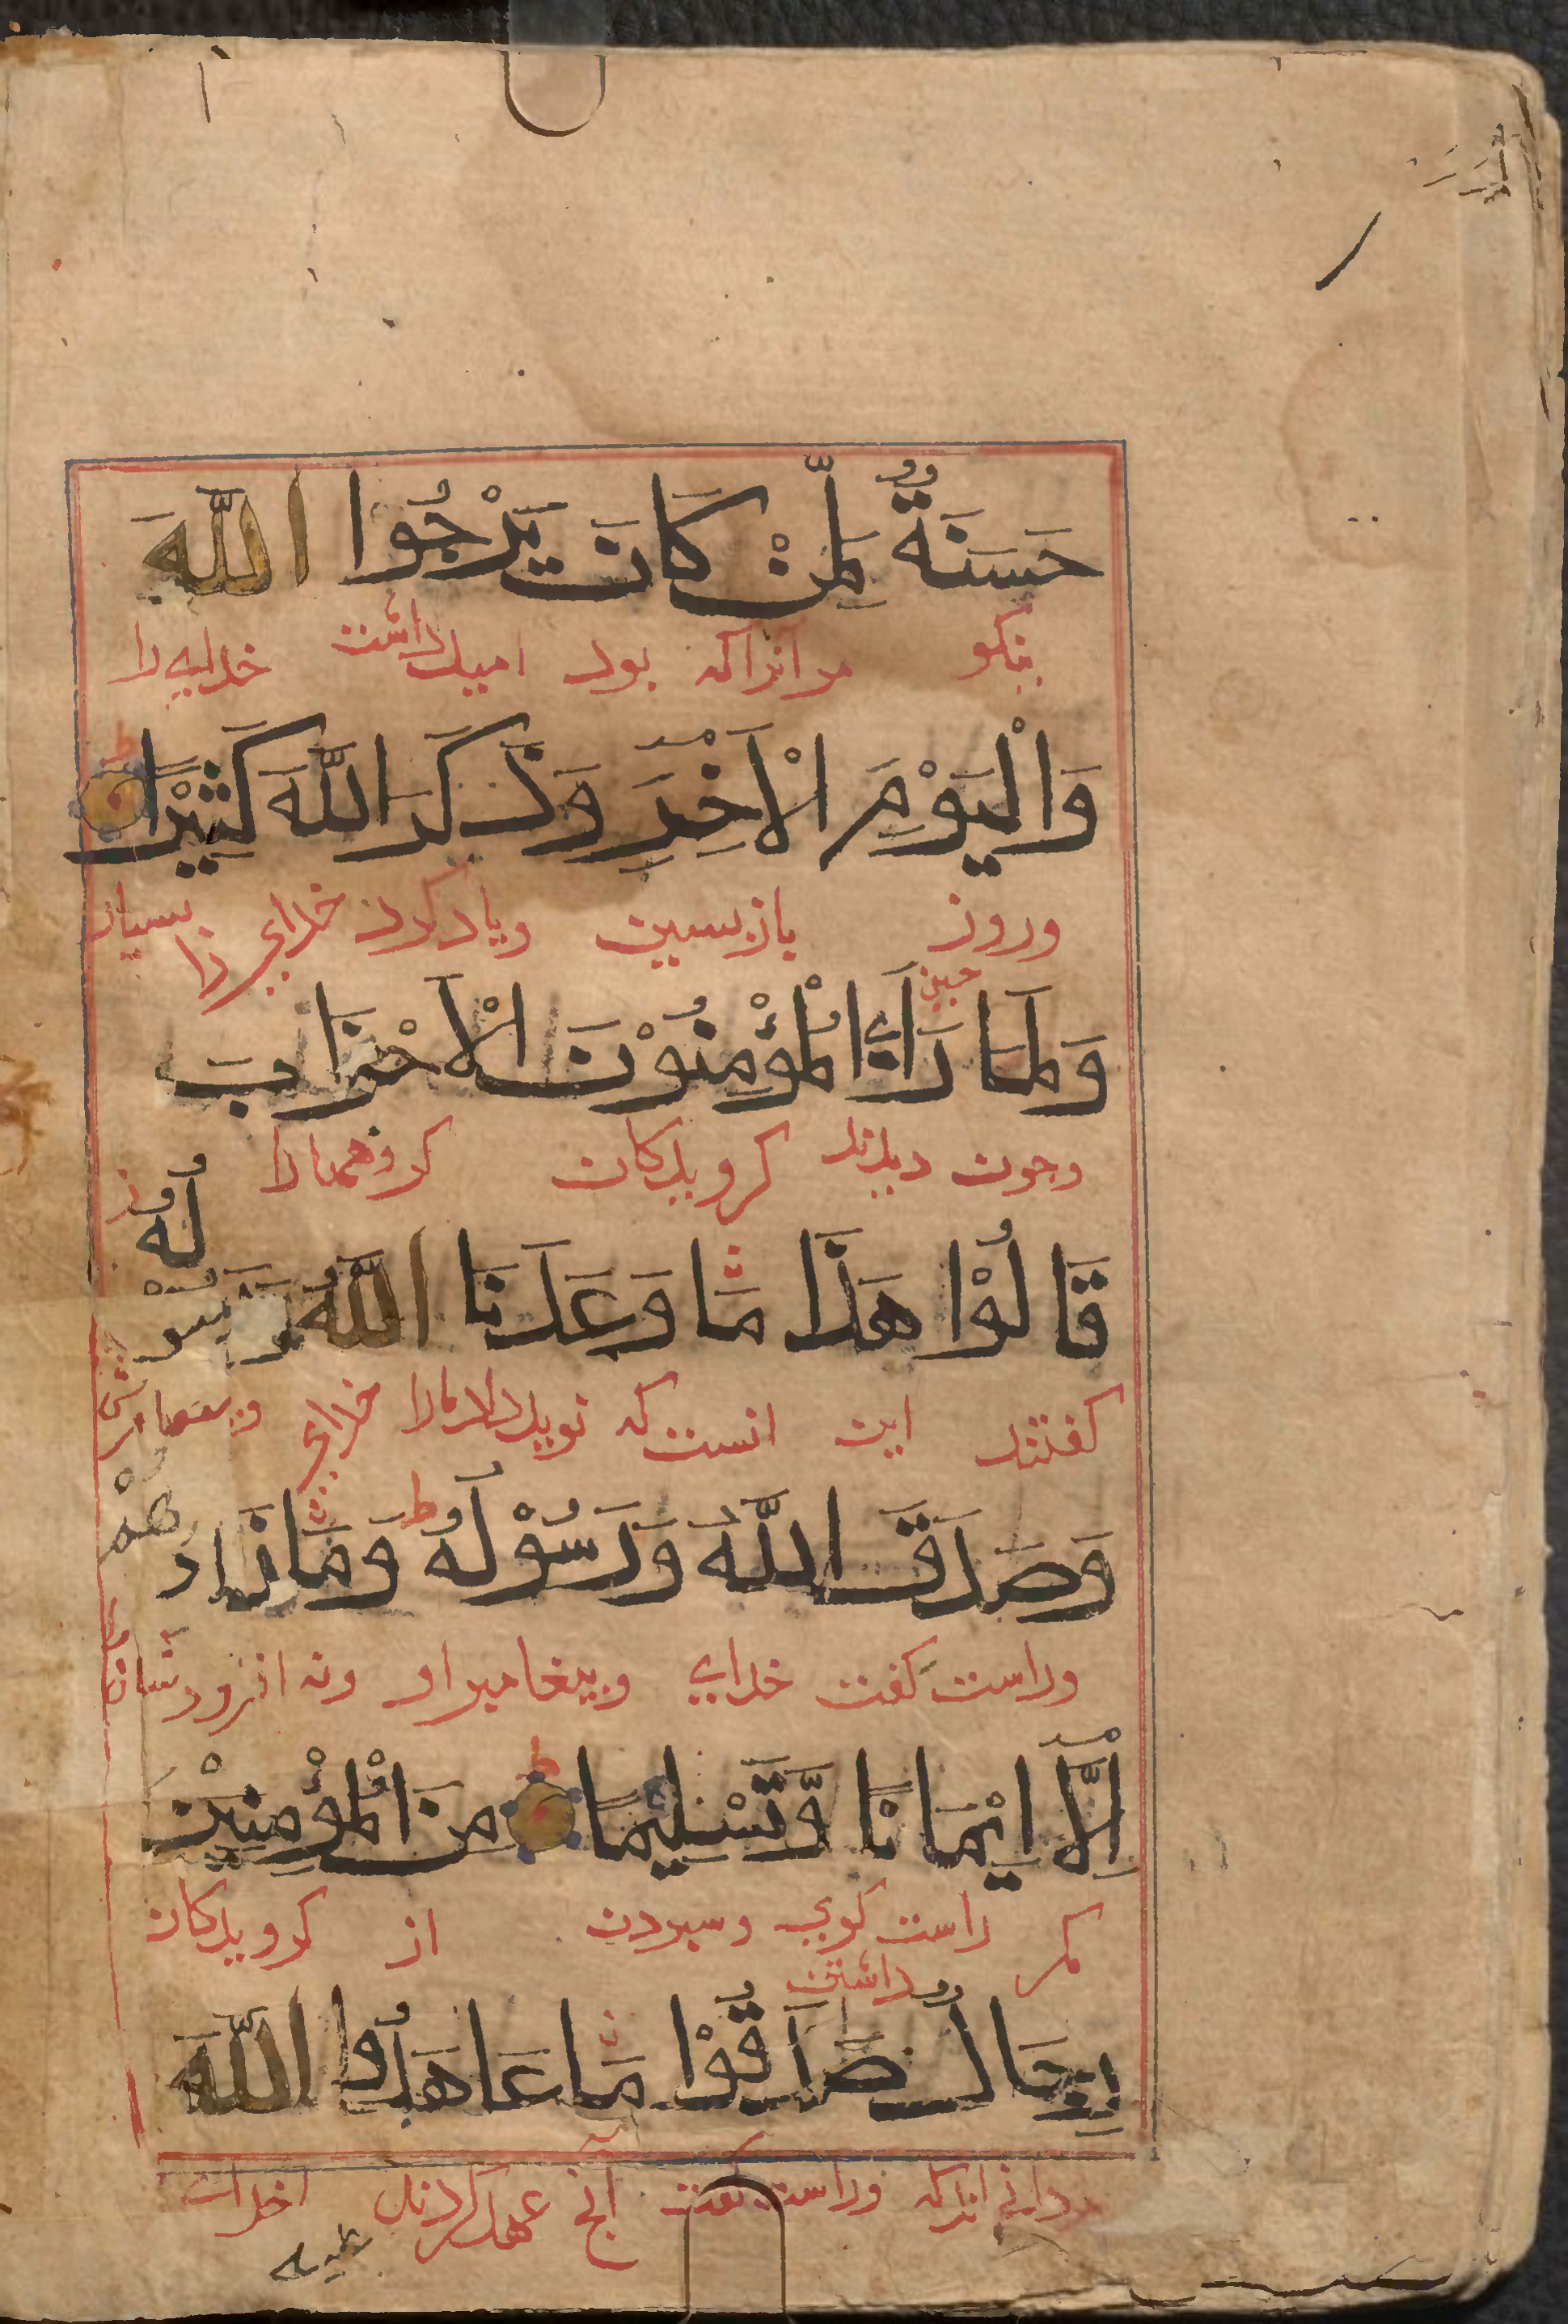 حَسَنَةٌ لِّمَنْ كَانَ يَرْجُوا اللّٰهَ
نیکو مر انرا که بود امید داشت خدایه را
وَالْيَوْمَ الْاٰخِرَ وَذَكَرَ اللّٰهَ كَثِيْرًا ط
وروز بازپسین ویاد کرد خدای را بسیار
وَلَمَّا رَاَ الْمُؤْمِنُوْنَ الْاَحْزَابَ
وچون دیدند کرویدکان کروهها را
قَالُوْا هٰذَا مَا وَعَدَنَا اللّٰهُ وَرَسُوْلُهٗ
کفتند این انست که نوید داد مارا خدای
وَصَدَقَ اللّٰهُ وَرَسُوْلُهٗ ط وَمَا زَادَهُمْ
وراست کفت خدای وپیغامبر او ونه افزودشان
اِلَّا اِيْمَانًا وَّتَسْلِيْمًا ط مِنَ الْمُؤْمِنِيْنَ
مکر راست کوی وسپردن از کرویدکان
رِجَالٌ صَدَقُوْا مَا عَاهَدُوا اللّٰهَ
وراست کفت انچ عهد کردند
عليه